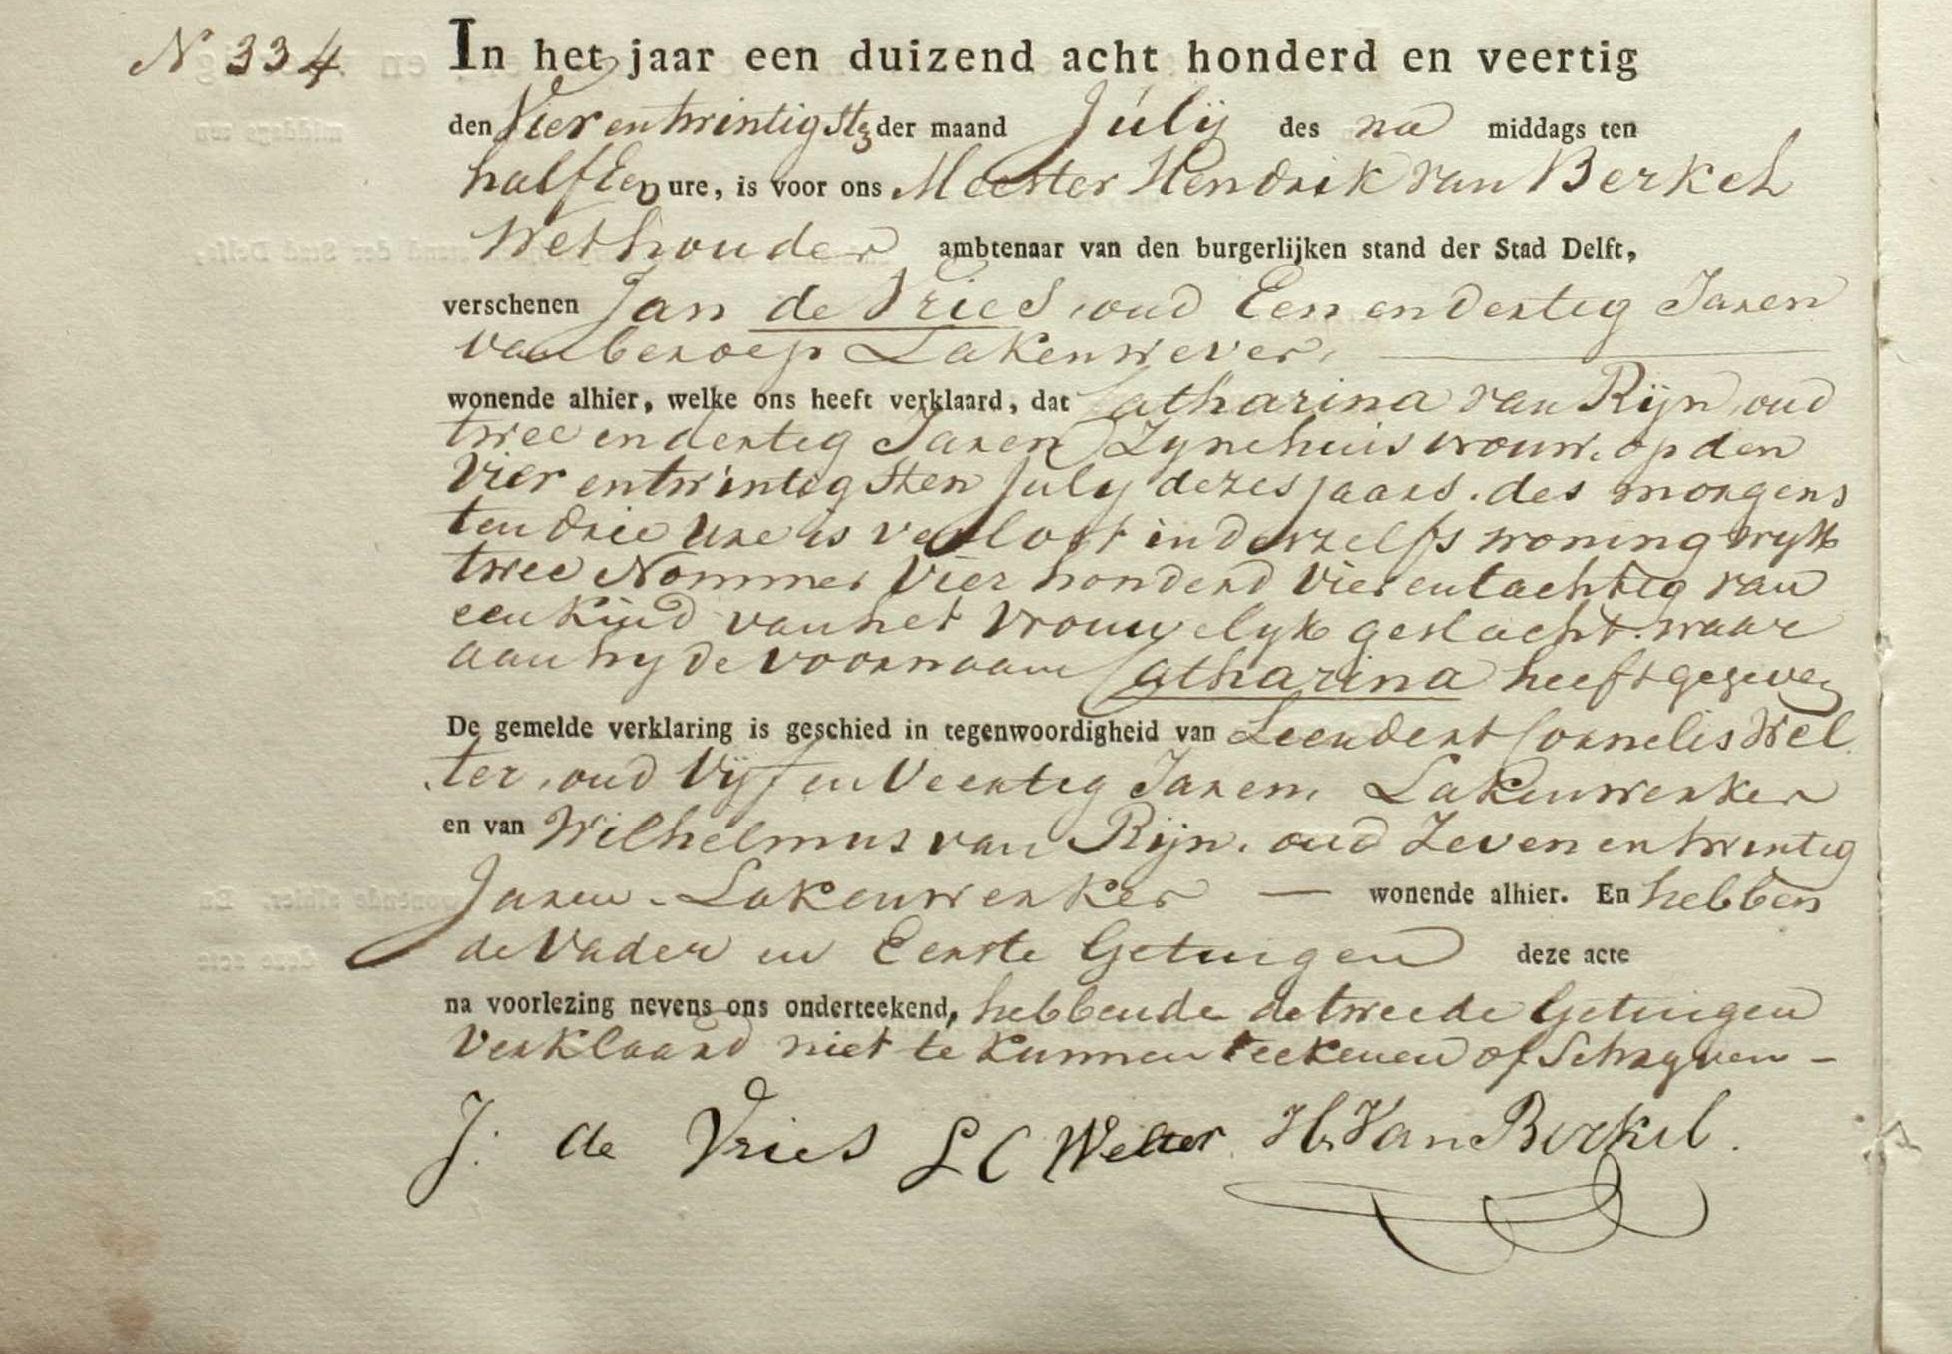 N 334
In het jaar een duizend acht honderd en veertig
den Vier en twintigste der maand July des na middags ten
half Een ure, is voor ons Meester Hendrik van Berkel
Wethouder ambtenaar van den burgerlijken stand der Stad Delft,
verschenen Jan de Vries, oud Een en dertig Jaren
van beroep Lakenwever,
wonende alhier, welke ons heeft verklaard, dat Catharina van Rijn, oud
twee en dertig Jaren Zyne huisvrouw, op den
Vier en twintigsten July dezes jaars. des morgens
ten drie Ure is verlost in derzelfs woning wyk
twee Nommer Vier honderd Vier en tachtig van
een Kind van het Vrouwelyk geslacht. waar
aan hy de voornaam Catharina heeft gegeven
De gemelde verklaring is geschied in tegenwoordigheid van Leendert Cornelis Wel
ter, oud Vijf en Veertig Jaren, Lakenwerker
en van Wilhelmus van Rijn, oud Zeven en twintig
Jaren - Lakenwerker — wonende alhier. En hebben
de Vader en Eerste Getuigen deze acte
na voorlezing nevens ons onderteekend, hebbende de tweede Getuigen
Verklaard niet te kunnen teekenen of Schryven -
J: de Vries L C Welter H. Van Berkel.